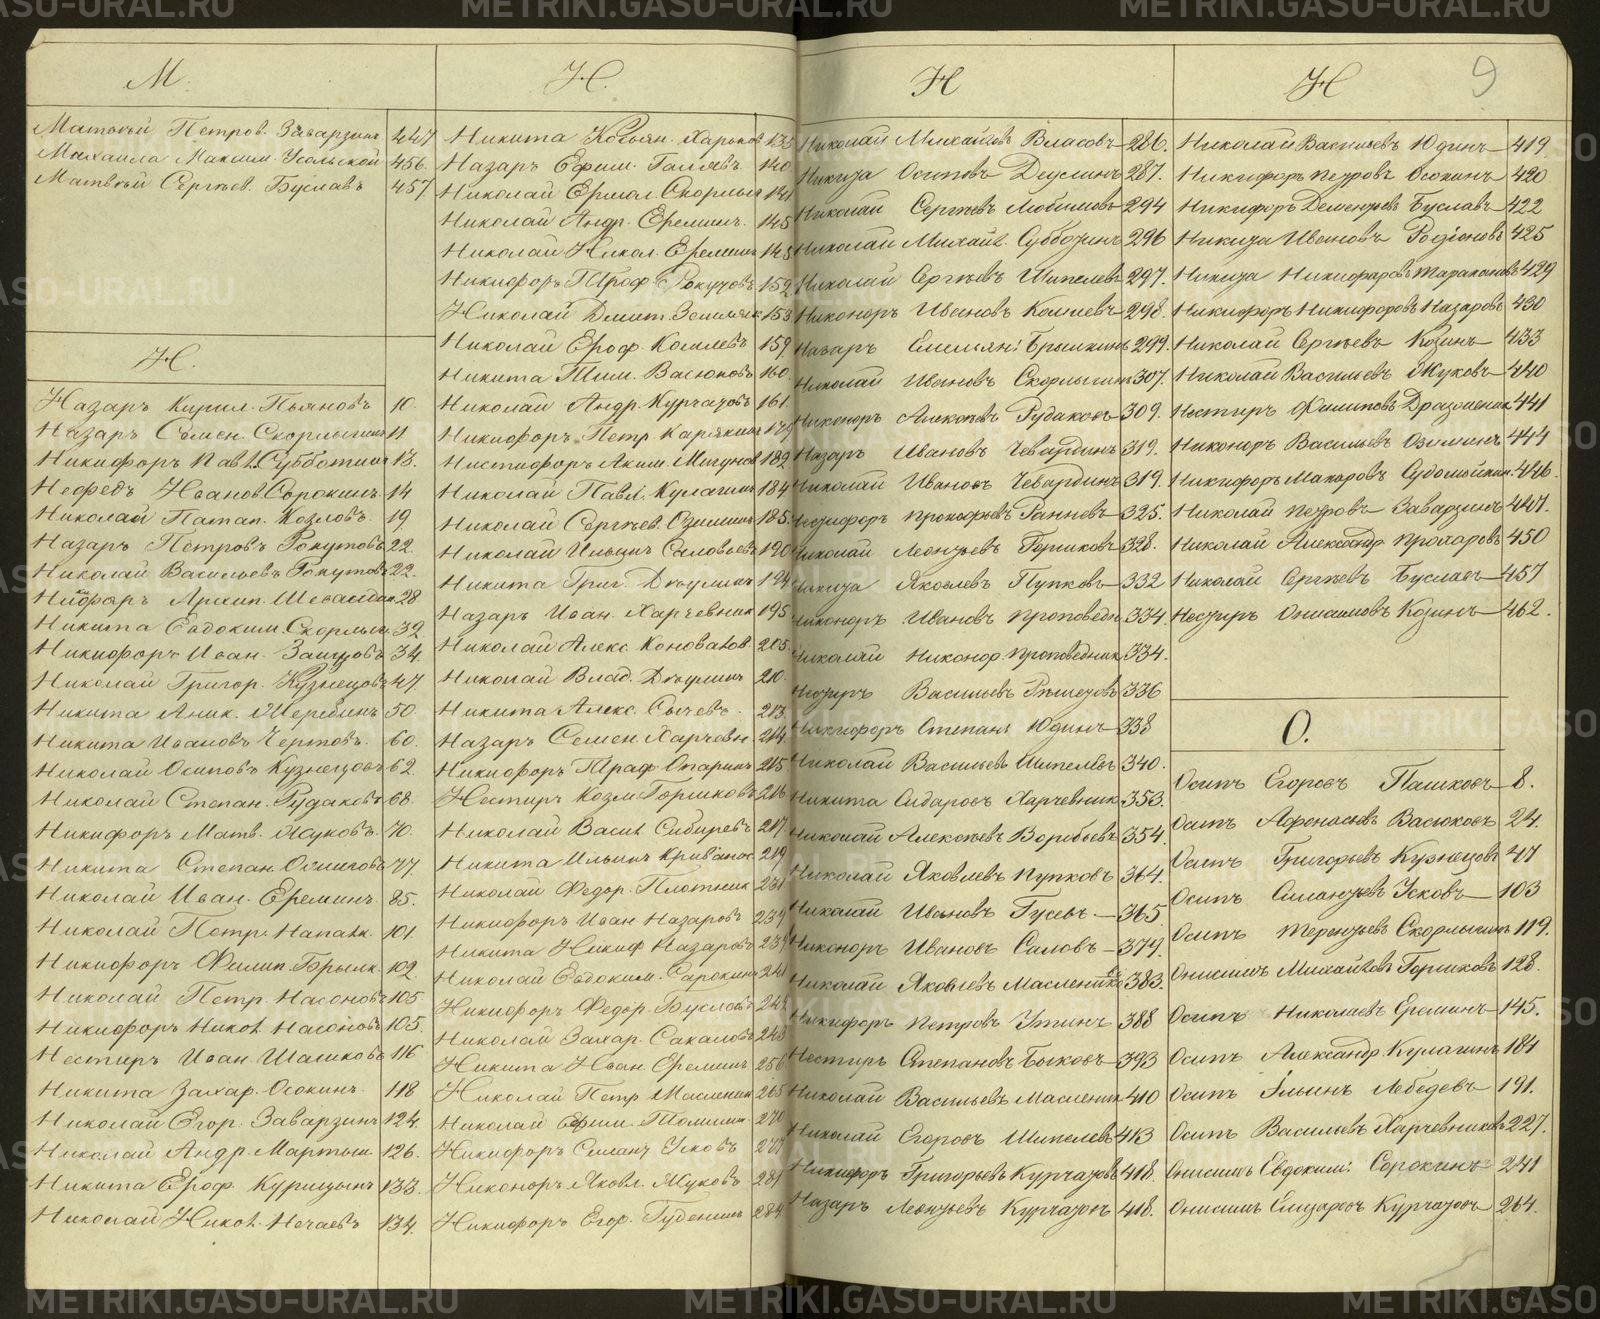 METRIKI.GASO-URAL.RU
М.
Матвѣй Петров. Заварзинъ 447
Михаила Максим. Усольской 456.
Матвѣй Сергѣев. Буславъ 457
Н.
Назаръ Кирил. Пьяновъ 10.
Назаръ Семен. Скорлыгинъ 11
Никифоръ Павл. Субботинъ 13.
Нефедъ Иванов. Сорокинъ 14
Николай Патап. Козловъ 19.
Назаръ Петровъ Рокутовъ 22.
Николай Васильевъ Рокутовъ 22.
Никифоръ Архип. 28
Никита Евдоким. Скорлыг. 32.
Никифоръ Иван. Зайцовъ 34.
Николай Григор. Кузнецовъ 47
Никита Аник. Жеребинъ 50.
Никита Ивановъ Чертовъ. 60.
Николай Осиповъ Кузнецовъ 62.
Николай Степан. Рудаковъ 68.
Никифоръ Матв. Жуковъ. 70.
Никита Степан. 77.
Николай Иван. Еремин. 85.
Николай Петр. 101.
Никифоръ Филип. Брылк. 102.
Николай Петр. Насоновъ 105.
Никифоръ Никол. Насоновъ 105.
Нестиръ Иван. Шашковъ 116
Никита Захар. Осокинъ. 118
Николай Егор. Заварзинъ 124.
Николай Андр. Мартыш. 126.
Никита Ероф. Курицынъ 133.
Николай Никол. Нечаевъ 134.
Н.
Никита Харьков 135
Назаръ Ефим. Галяевъ. 140
Николай Ермол. Скорлыг 141
Николай Андр. Еремин. 145
Николай Никол. Еремин 145
Никифоръ Троф. Рокутовъ 152
Николай Дмит. 153
Николай Ероф. Кошлевъ 159
Никита Тим. Васюковъ 160.
Николай Андр. Курчатовъ 161.
Никифоръ Петр. Карякин
Нистифоръ Аким. Мигунов 182
Николай Павл. Кулагинъ 184
Николай Сергѣев. Озимин 185.
Николай Ильинъ Соловьевъ 190
Никита Григ. Деулинъ 194
Назаръ Иван. Харчевник 195
Николай Алекс. Коновалов 205.
Николай Влад. Деулинъ 210.
Никита Алекс. Сычевъ. 213.
Назаръ Семен. Харчевн. 214.
Никифоръ Траф. Опаринъ 215
Нестиръ Козм. Горшковъ 216
Николай Васил. Сибиревъ 217.
Никита Ильинъ Кривонос 219
Николай Федор. Плотник 231
Никифоръ Иван. Назаровъ 239
Никита Никиф. Назаровъ 239
Николай Евдоким. Сорокинъ 241
Никифоръ Федор. Буславъ 245
Николай Захар. Сакаловъ 248
Никита Иван. Еремин. 256
Николай Петр. Масленик 265
Николай Ефим. Томилин 270
Никифоръ Силант. Усковъ 277
Никоноръ Яковл. Жуковъ 281
Никифоръ Егор. Губенинъ 284
Н
Николай Михайловъ Власовъ 286.
Никита Осиповъ Деулинъ 287.
Николай Сергѣевъ Любимовъ 294
Николай Михайл. Субботинъ 296
Николай Сергѣевъ Шипелевъ 297.
Никоноръ Ивановъ Кошлевъ 298.
Назаръ Емельян. Брылкинъ 299.
Николай Ивановъ Скорлыгинъ 307.
Никоноръ Алексѣевъ Рудаковъ 309.
Назаръ Ивановъ Чевардинъ 319.
Николай Ивановъ Чевардинъ 319.
Никифоръ Прокофьевъ Ганневъ 325.
Николай Леонтьевъ Горшковъ 328.
Никита Яковлевъ Пупковъ 332
Никоноръ Ивановъ Проповедн 334.
Николай Никонор. Проповедник 334.
Нестиръ Васильевъ Решетовъ 336
Никифоръ Степанъ Юдинъ 338
Николай Васильевъ Шипелевъ 340.
Никита Сидаровъ Харчевник 353.
Николай Алексѣевъ Воробьевъ 354.
Николай Яковлевъ Пупковъ 364.
Николай Ивановъ Гусевъ 365.
Никоноръ Ивановъ Саловъ 379.
Николай Яковлевъ Масленик 383.
Никифоръ Петровъ Утинъ 388
Нестиръ Степановъ Быковъ 393
Николай Васильевъ Масленик 410
Николай Егоровъ Шипелевъ 413
Никифоръ Григорьевъ Курчатовъ 418.
Назаръ Леонтьевъ Курчатовъ 418.
Н 9
Николай Васильевъ Юдинъ 419.
Никифоръ Петровъ Осокинъ 420
Никифоръ Дементьевъ Буславъ 422
Никита Ивановъ Родіоновъ 425
Никита Никифоровъ Таракановъ 429
Никифоръ Никифоровъ Назаровъ 430
Николай Сергѣевъ Козинъ 433
Николай Васильевъ Жуковъ 440
Нестиръ Филиповъ 441
Никоноръ Васильевъ Озиминъ 444
Никифоръ Макаровъ Судомойкин 446.
Николай Петровъ Заварзинъ 447.
Николай Александр. Прохаровъ 450
Николай Сергѣевъ Буславъ 457
Нестиръ Онисимовъ Козинъ 462.
О.
Осипъ Егоровъ Пашковъ 8.
Осипъ Афонасьевъ Васюковъ 24.
Осипъ Григорьевъ Кузнецовъ 47
Осипъ Силантьевъ Усковъ 103
Осипъ Терентьевъ Скорлыгинъ 119.
Онисимъ Михайловъ Горшковъ 128.
Осипъ Николаевъ Ереминъ 145.
Осипъ Александр. Кулагинъ 184
Осипъ Ильинъ Лебедевъ 191.
Осипъ Васильевъ Харчевниковъ 227.
Онисимъ Евдоким. Сорокинъ 241
Онисимъ Сидаровъ Курчатовъ 264.
METRIKI.GASO-URAL.RU